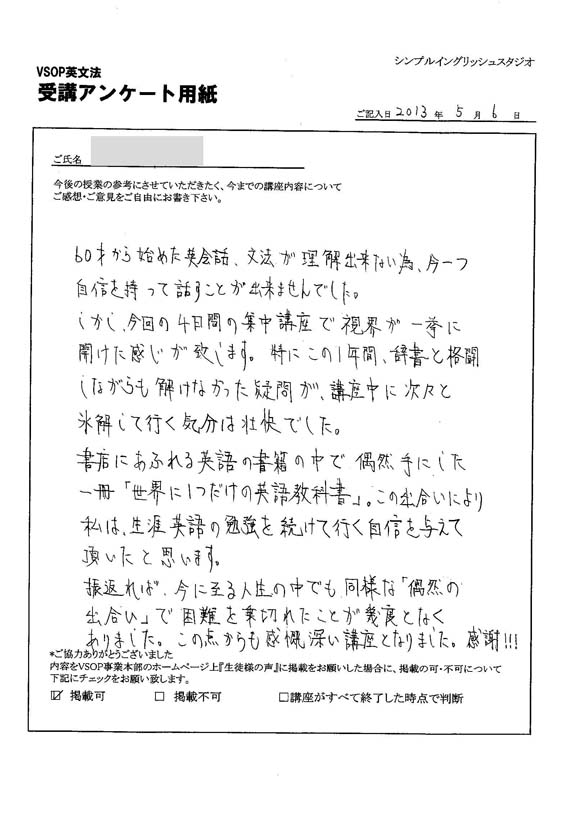 シンプルイングリッシュスタジオ
VSOP英文法
受講アンケート用紙
ご記入日 2013 年 5 月 6 日
ご氏名
今後の授業の参考にさせていただきたく、今までの講座内容について
ご感想・ご意見をご自由にお書き下さい。
60才から始めた英会話、文法が理解出来ない為、今一つ
自信を持って話すことが出来ませんでした。
しかし、今回の4日間の集中講座で視界が一挙に
開けた感じが致します。特にこの1年間、辞書と格闘
しながらも解けなかった疑問が、講座中に次々と
氷解して行く気分は壮快でした。
書店にあふれる英語の書籍の中で偶然手にした
一冊「世界に1つだけの英語教科書」。この出合いにより
私は、生涯英語の勉強を続けて行く自信を与えて
頂いたと思います。
振返れば、今に至る人生の中でも同様な「偶然の
出合い」で困難を乗切れたことが幾度となく
ありました。この点からも感慨深い講座となりました。感謝!!!
*ご協力ありがとうございました
内容をVSOP事業本部のホームページ上『生徒様の声』に掲載をお願いした場合に、掲載の可・不可について
下記にチェックをお願い致します。
☑ 掲載可 □ 掲載不可 □講座がすべて終了した時点で判断